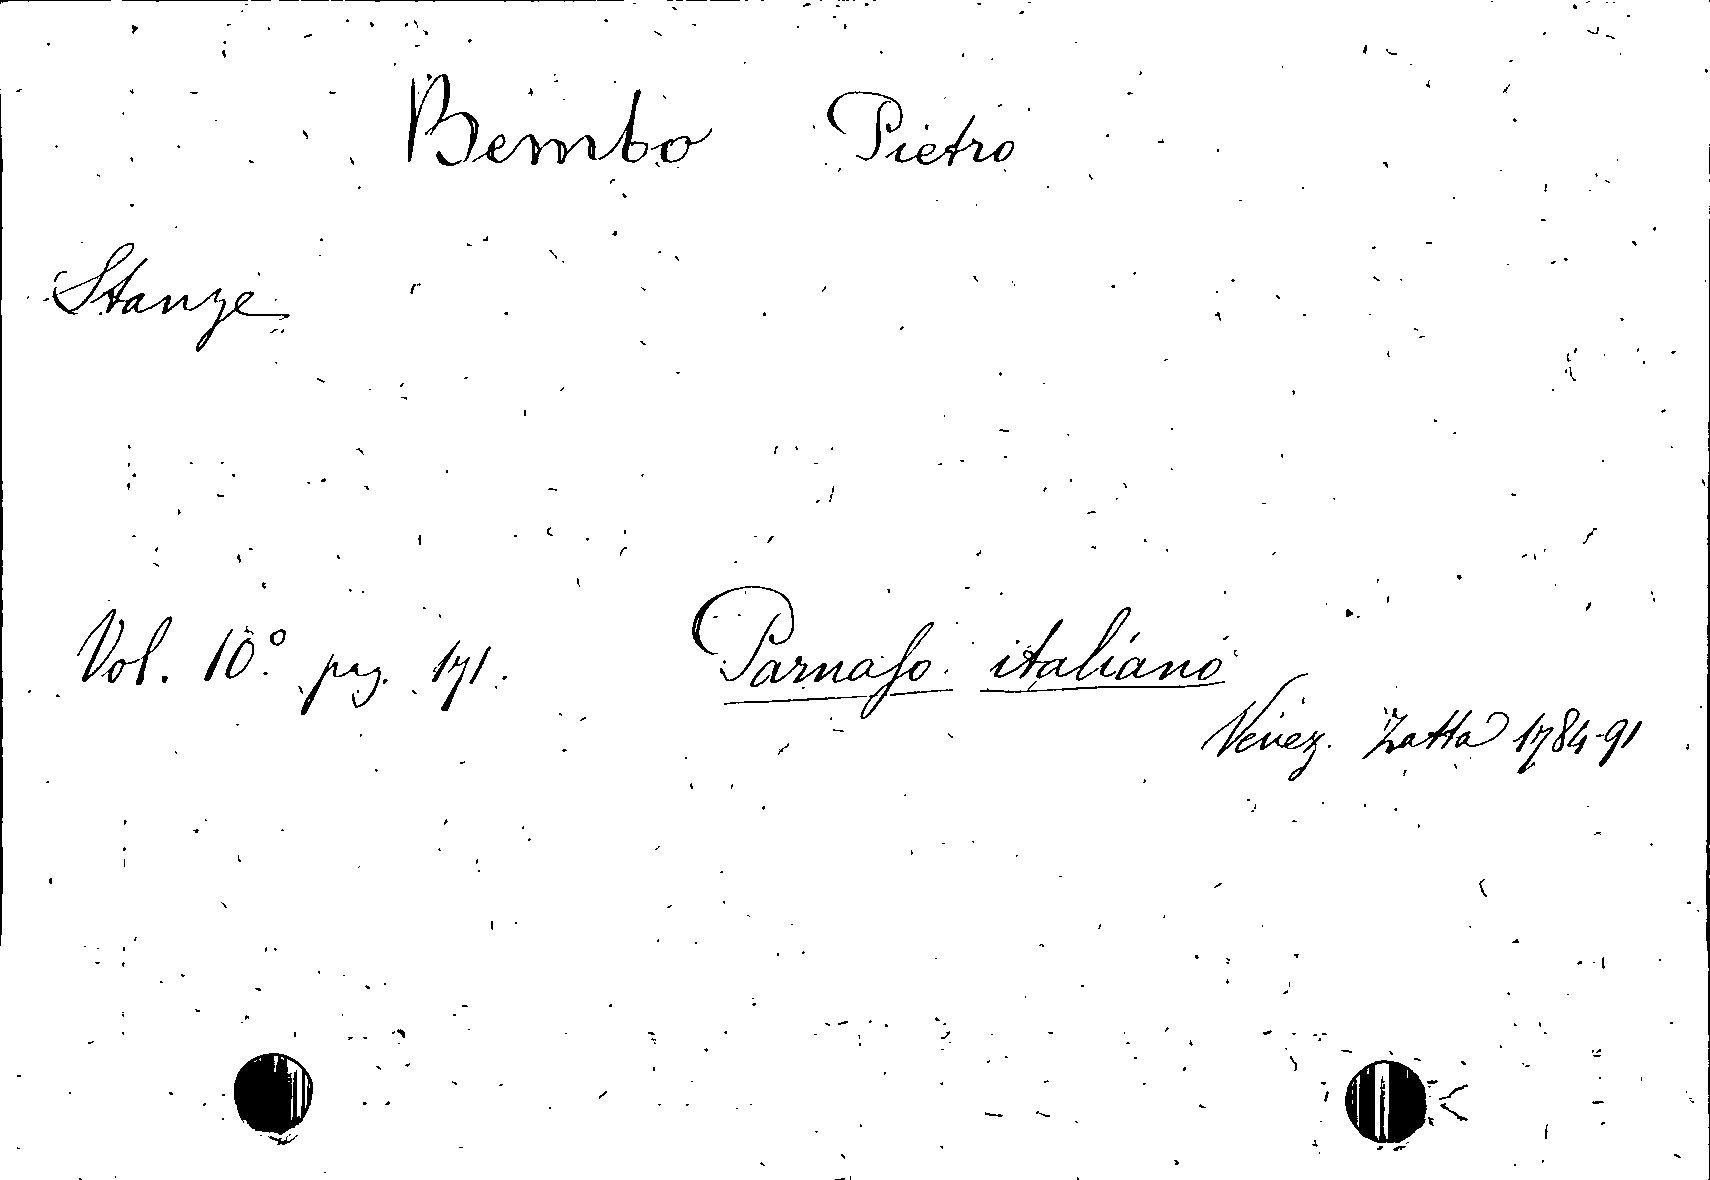 Bembo Pietro
Stanze
Vol. 10.º pag. 171. Parnaso italiano
Venez. Zatta 1784-91